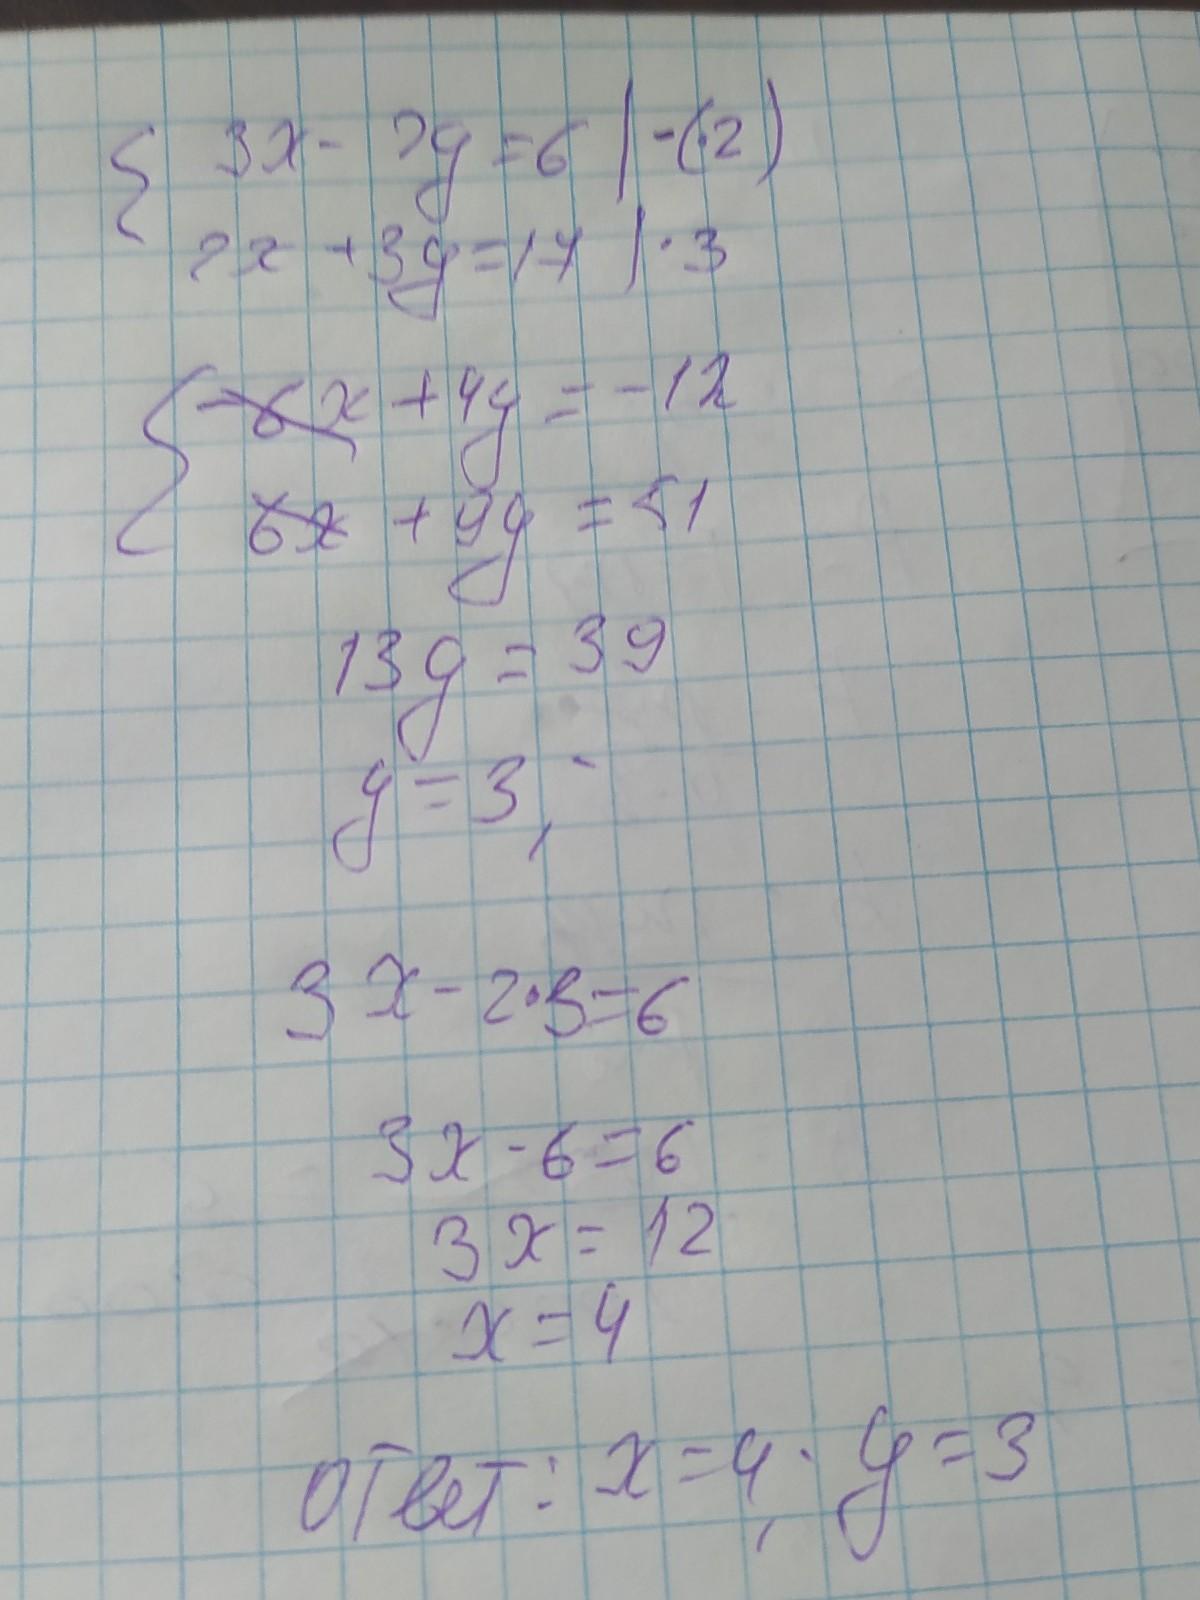 { 3x - 2y = 6 | -(·2)
2x + 3y = 17 | · 3
{ -6x + 4y = -12
6x + 9y = 51
13y = 39
y = 3;
3x - 2·3 = 6
3x - 6 = 6
3x = 12
x = 4
ответ: x = 4; y = 3